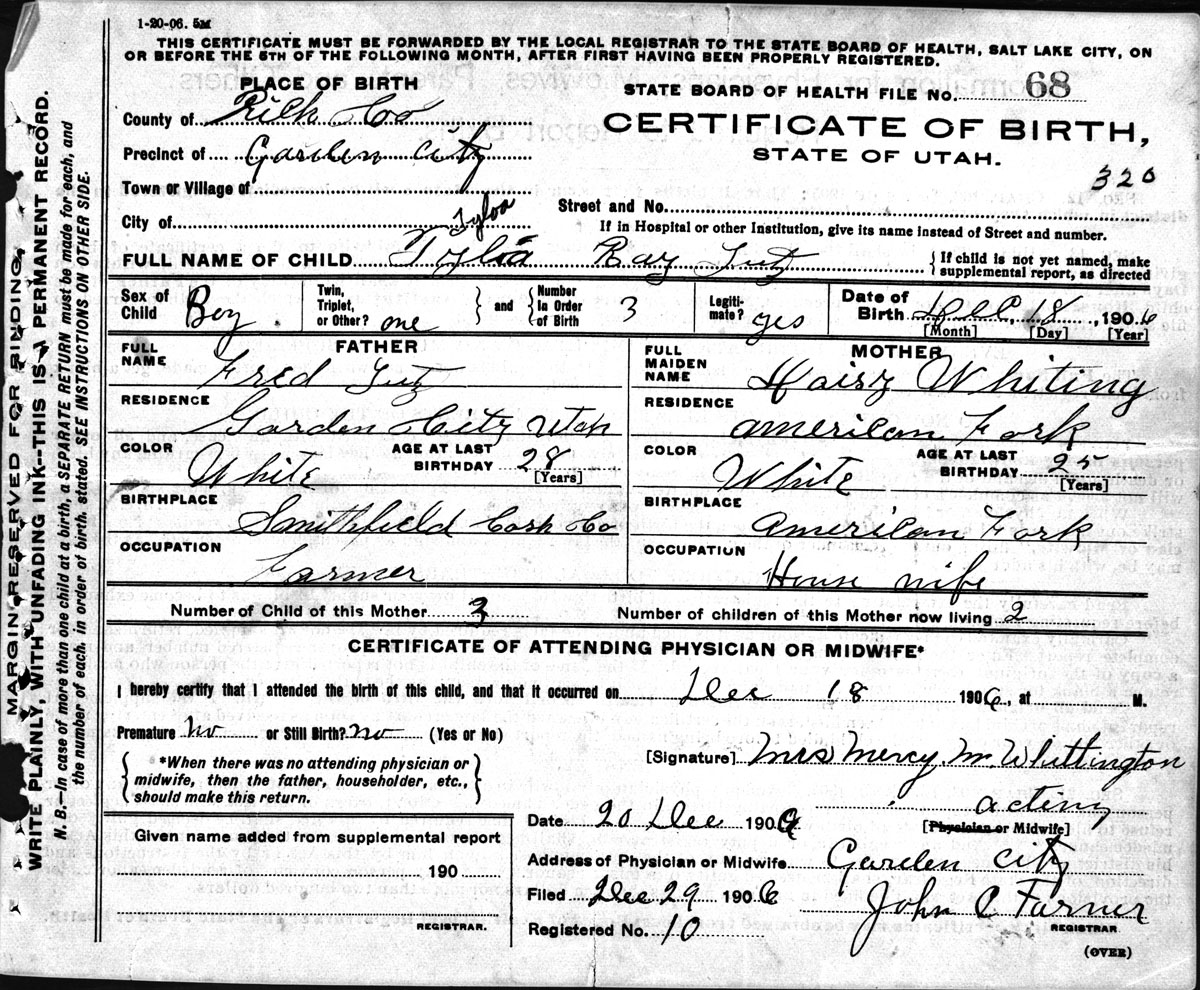 1-20-06. 5M
THIS CERTIFICATE MUST BE FORWARDED BY THE LOCAL REGISTRAR TO THE STATE BOARD OF HEALTH, SALT LAKE CITY, ON
OR BEFORE THE 5TH OF THE FOLLOWING MONTH, AFTER FIRST HAVING BEEN PROPERLY REGISTERED.
PLACE OF BIRTH
STATE BOARD OF HEALTH FILE No. 68
County of Rich Co
CERTIFICATE OF BIRTH,
Precinct of Garden City
STATE OF UTAH.
320
Town or Village of
City of
Street and No.
If in Hospital or other Institution, give its name instead of Street and number.
FULL NAME OF CHILD Ray
If child is not yet named, make supplemental report, as directed
Sex of Child Boy
Twin, Triplet, or Other? one
and Number in Order of Birth 3
Legitimate? yes
Date of Birth Dec, 18, 1906
[Month] [Day] [Year]
FATHER
FULL NAME Fred
RESIDENCE
Garden City Utah
COLOR White
AGE AT LAST BIRTHDAY 28
[Years]
BIRTHPLACE
Smithfield Cash Co
OCCUPATION
Farmer
MOTHER
FULL MAIDEN NAME Whiting
RESIDENCE
American Fork
COLOR White
AGE AT LAST BIRTHDAY 25
[Years]
BIRTHPLACE
American Fork
OCCUPATION
House wife
Number of Child of this Mother 3
Number of children of this Mother now living 2
CERTIFICATE OF ATTENDING PHYSICIAN OR MIDWIFE*
I hereby certify that I attended the birth of this child, and that it occurred on Dec 18 1906, at M.
Premature no or Still Birth? no (Yes or No)
*When there was no attending physician or
midwife, then the father, householder, etc.,
should make this return.
[Signature] Mrs Mercy M. Whittington
acting
[Physician or Midwife]
Date 20 Dec 1906
Given name added from supplemental report
190
REGISTRAR.
Address of Physician or Midwife Garden City
Filed Dec 29 1906
John C Farner
REGISTRAR.
Registered No. 10
(OVER)
MARGIN RESERVED FOR BINDING,
WRITE PLAINLY, WITH UNFADING INK--THIS IS A PERMANENT RECORD.
N. B.—In case of more than one child at a birth, a SEPARATE RETURN must be made for each, and
the number of each, in order of birth, stated. SEE INSTRUCTIONS ON OTHER SIDE.